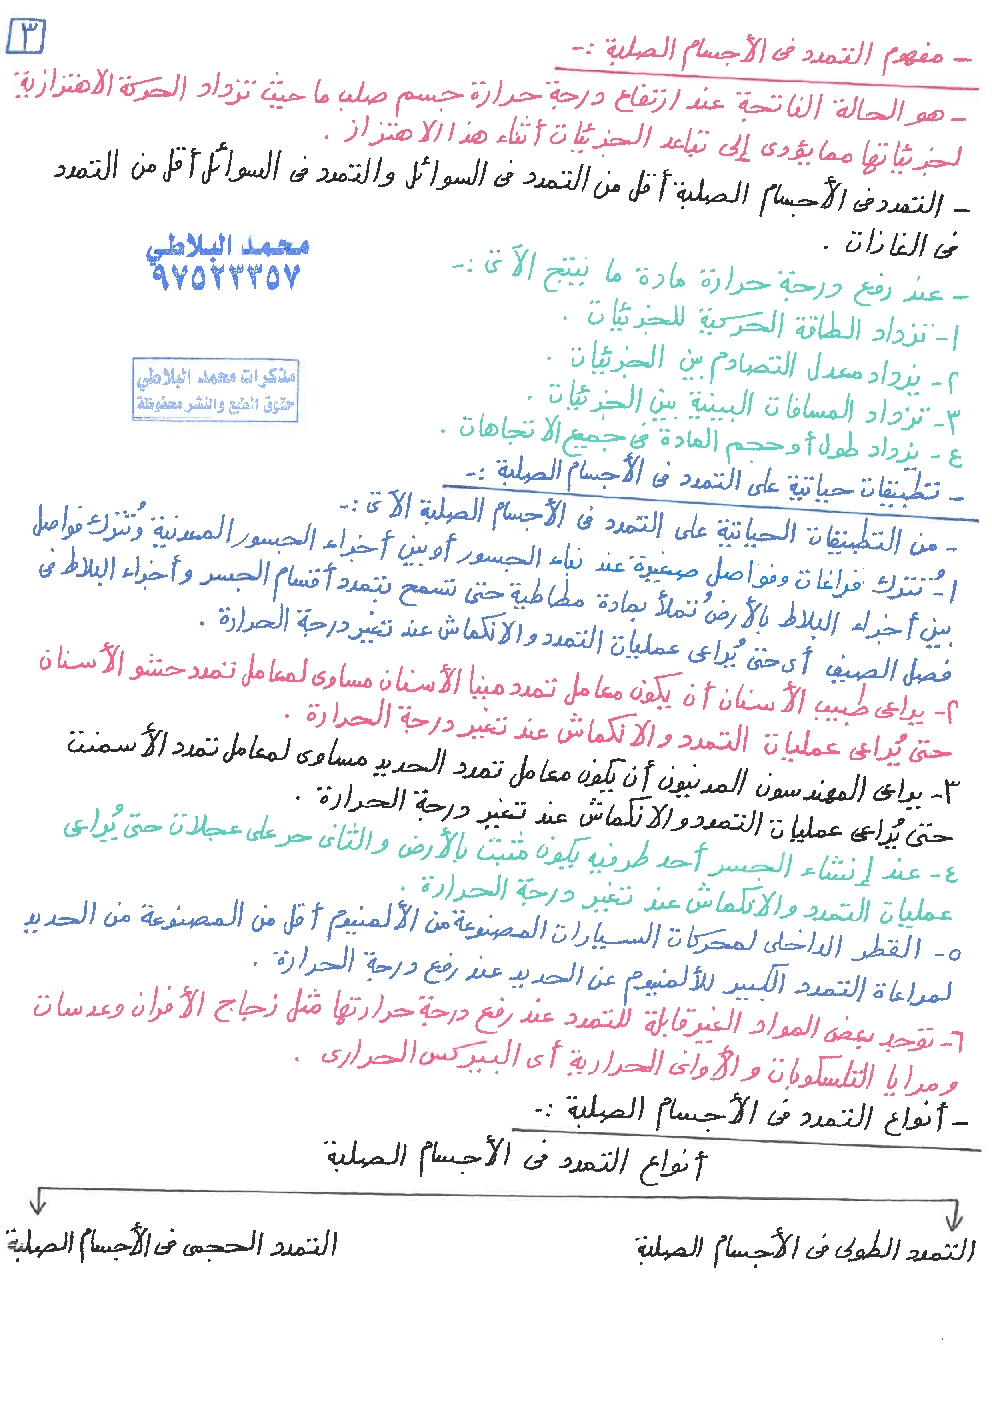 ٣
- مفهوم التمدد فى الأجسام الصلبة :-
- هو الحالة الناتجة عند ارتفاع درجة حرارة جسم صلب ما حيث تزداد الحركة الاهتزازية
لجزيئاتها مما يؤدى إلى تباعد الجزيئات أثناء هذا الاهتزاز .
- التمدد فى الأجسام الصلبة أقل من التمدد فى السوائل والتمدد فى السوائل أقل من التمدد
فى الغازات .
محمد البلاطي
٩٧٥٢٣٣٥٧
- عند رفع درجة حرارة مادة ما ينتج الآتى :-
١- تزداد الطاقة الحركية للجزيئات .
٢- يزداد معدل التصادم بين الجزيئات .
مذكرات محمد البلاطي
حقوق الطبع والنشر محفوظة
٣- تزداد المسافات البينية بين الجزيئات .
٤- يزداد طول أو حجم المادة فى جميع الاتجاهات .
- تطبيقات حياتية على التمدد فى الأجسام الصلبة :-
- من التطبيقات الحياتية على التمدد فى الأجسام الصلبة الآتى :-
١- تُترك فراغات وفواصل صغيرة عند بناء الجسور أو بين أجزاء الجسور المعدنية وتُترك فواصل
بين أجزاء البلاط بالأرض تُملأ بمادة مطاطية حتى تسمح بتمدد أقسام الجسر وأجزاء البلاط فى
فصل الصيف أى حتى يُراعى عمليات التمدد والانكماش عند تغير درجة الحرارة .
٢- يراعى طبيب الأسنان أن يكون معامل تمدد مينا الأسنان مساوى لمعامل تمدد حشو الأسنان
حتى يُراعى عمليات التمدد والانكماش عند تغير درجة الحرارة .
٣- يراعى المهندسون المدنيون أن يكون معامل تمدد الحديد مساوى لمعامل تمدد الأسمنت
حتى يُراعى عمليات التمدد والانكماش عند تغير درجة الحرارة .
٤- عند إنشاء الجسر أحد طرفيه يكون مثبت بالأرض والثانى حر على عجلات حتى يُراعى
عمليات التمدد والانكماش عند تغير درجة الحرارة .
٥- القطر الداخلى لمحركات السيارات المصنوعة من الألمنيوم أقل من المصنوعة من الحديد
لمراعاة التمدد الكبير للألمنيوم عن الحديد عند رفع درجة الحرارة .
٦- توجد بعض المواد الغير قابلة للتمدد عند رفع درجة حرارتها مثل زجاج الأفران وعدسات
ومرايا التلسكوبات والأوانى الحرارية أى البيركس الحرارى .
- أنواع التمدد فى الأجسام الصلبة :-
أنواع التمدد فى الأجسام الصلبة
التمدد الطولى فى الأجسام الصلبة
التمدد الحجمى فى الأجسام الصلبة